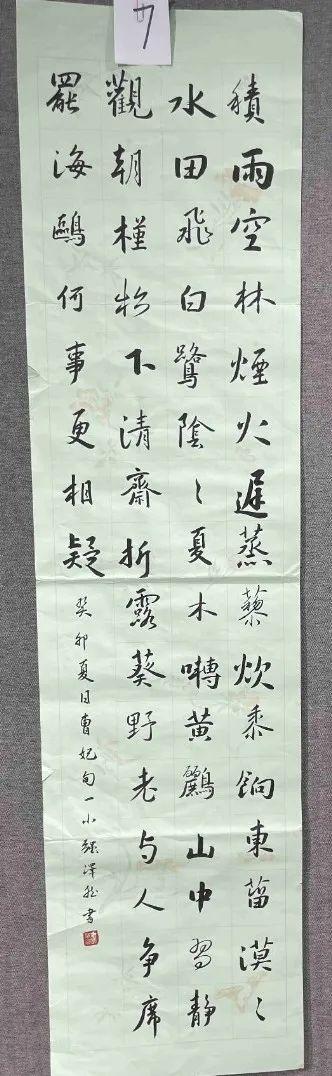 7
積雨空林煙火遲蒸藜炊黍餉東菑漠〻
水田飛白鷺陰〻夏木囀黃鸝山中習靜
觀朝槿松下清齋折露葵野老与人爭席
罷海鷗何事更相疑
癸卯夏日曹妃甸一小澤書